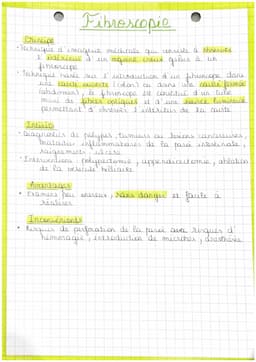 Fibroscopie
Principe
• Technique d'imagerie médicale qui consiste à observer
l'intérieur d'un organe creux grâce à un
fibroscope
• Technique basée sur l'introduction d'un fibroscope dans
une cavité ouverte (colon) ou dans une cavité fermée
(abdomen), le fibroscope est constitué d'un tube
muni de fibres optiques et d'une source lumineuse
permettant d'observer l'intérieur de la cavité
Intérêts
• Diagnostics de polypes, tumeurs ou lésions cancéreuses,
maladies inflammatoires de la paroi intestinale,
saignements, ulcères
• Interventions : polypectomie, appendicectomie, ablation
de la vésicule biliaire
Avantages
• Examens peu onéreux, sans danger et facile à
réaliser
Inconvénients
• Risques de perforation de la paroi avec risques d'
hémorragie, introduction de microbes,